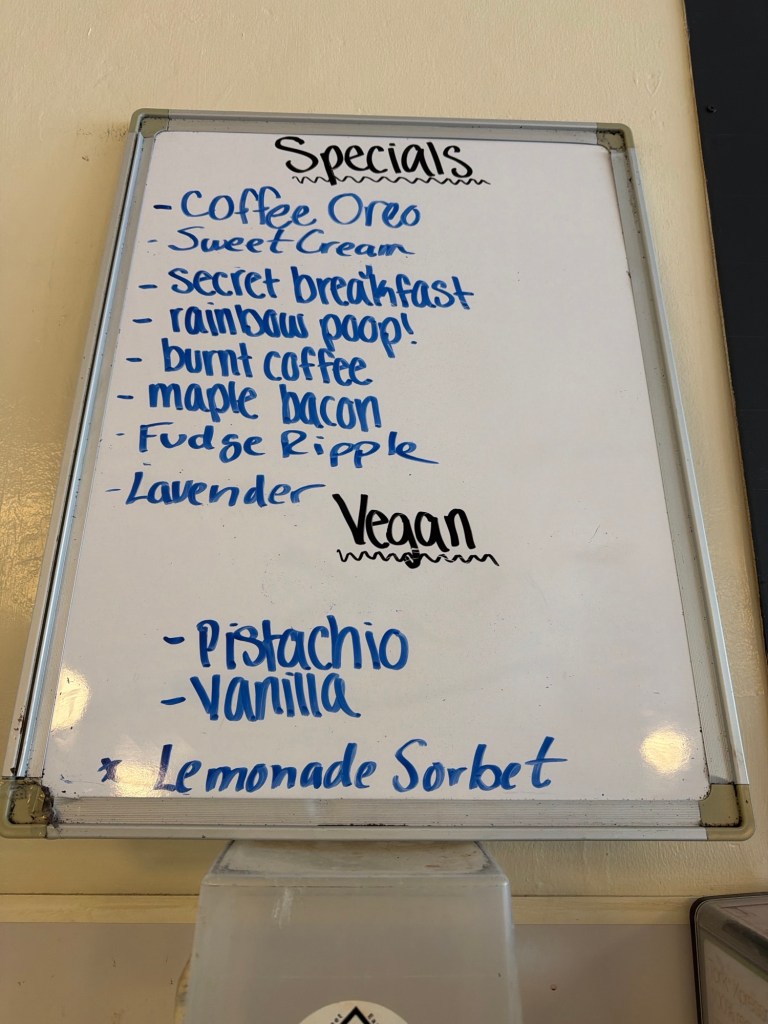 Specials
- Coffee Oreo
- Sweet Cream
- secret breakfast
- rainbow poop!
- burnt coffee
- maple bacon
- Fudge Ripple
- Lavender
Vegan
- Pistachio
- Vanilla
* Lemonade Sorbet